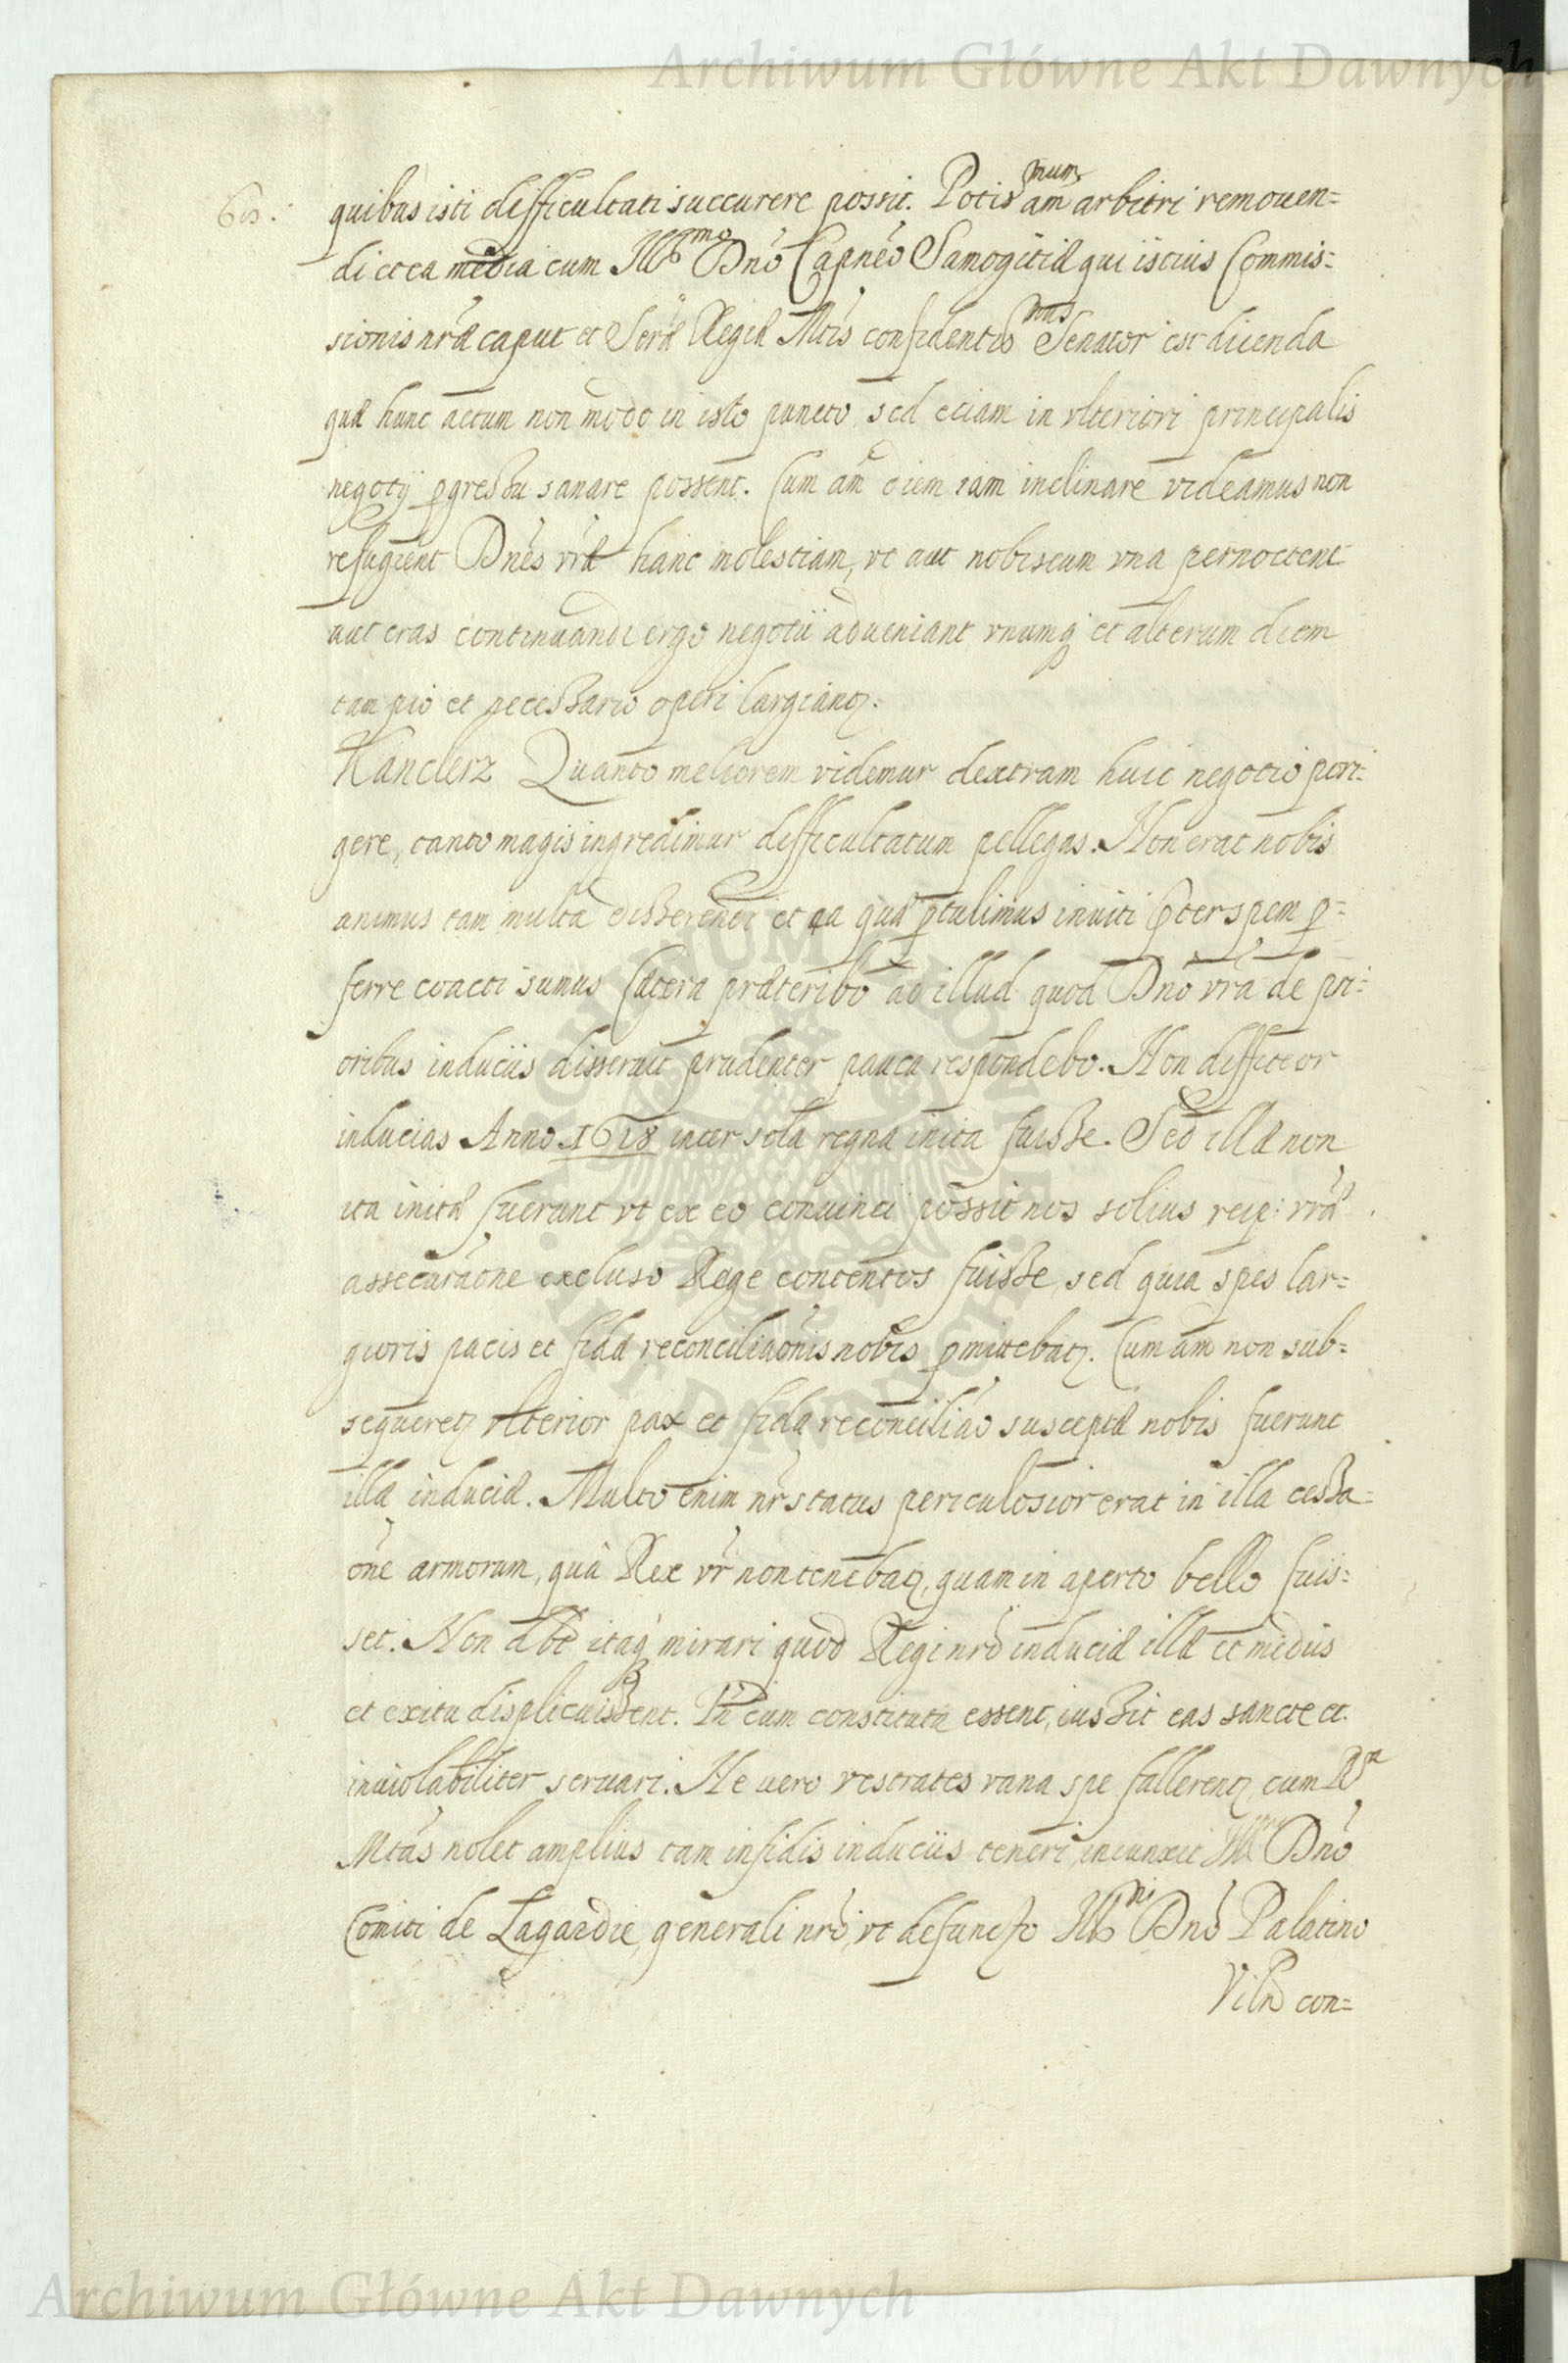 Archiwum Główne Akt Dawnych
quibus isti difficultati succurere possit. Potis mum am arbitri remouen=
di et ea media cum Illmo Dno Capneo Samogitiæ qui istius Commis=
sionis nræ caput et Seræ Regiæ Mtis confidentis mus Senator est dicenda
quæ hunc actum non modo in isto puncto, sed etiam in vlteriori principalis
negotij pgressu sanare possent. Cum am diem iam inclinare videamus non
refugient Dnes vræ hanc molestiam, vt aut nobiscum vna pernoctent
aut cras continuandi ergo negotii adueniant, vnumq et alterum diem
tam pio et necessario operi largiant.
Kanclerz Quanto meliorem videmur dextram huic negotio pori=
gere, tanto magis ingredimur difficultatum pellegus. Non erat nobis
animus tam multa disserendi et ea quæ ptulimus inuiti pter spem p=
ferre coacti sumus Cætera præteribo ad illud quod Dno vra de pri=
oribus induciis disseruit prudenter pauca respondebo. Non diffiteor
inducias Anno 1618 inter sola regna inita fuisse. Sed illæ non
ita initæ fuerunt vt ex eo conuinci possit nos solius reip: vræ
assecuraone excluso Rege contentos fuisse, sed quia spes lar=
gioris pacis et fidæ reconciliaonis nobis pmittebat. Cum am non sub=
sequeret vlterior pax et fida reconciliao susceptæ nobis fuerunt
illæ induciæ. Multo enim nr status periculosior erat in illa cessa=
one armorum, quâ Rex vr non tenebat, quam in aperto bello fuis=
set. Non debt itaq mirari quod Regi nro induciæ illæ et mediis
et exitu displicuissent. Tn cum constituta essent, iussit eas sancte et
inuiolabiliter seruari. Ne uero vestrates vana spe fallerent, cum Ra
Mtas nolet amplius tam infidis induciis teneri, iniunxit Illmo Dno
Comiti de Lagardie, generali nro, vt defuncto Illmi Dno Palatino
Viln con=
Archiwum Główne Akt Dawnych